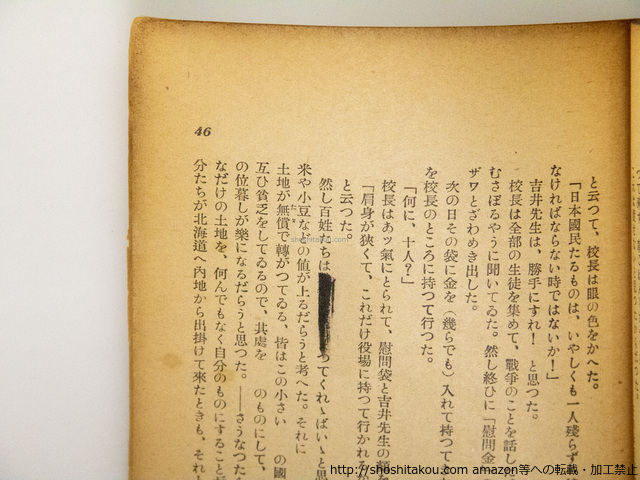 46
と云つて、校長は眼の色をかへた。
「日本國民たるものは、いやしくも一人残らず
なければならない時ではないか！」
吉井先生は、勝手にすれ！　と思つた。
校長は全部の生徒を集めて、戰爭のことを話し
むさぼるやうに聞いてゐた。然し終ひに「慰問金
ザワとざわめき出した。
次の日その袋に金を（幾らでも）入れて持つて
を校長のところに持つて行つた。
「何に、十人？」
校長はあッ氣にとられて、慰問袋と吉井先生の顏を
「肩身が狹くて、これだけ役場に持つて行かれる
と云つた。
然し百姓たちは
つてくれゝばいゝと思
米や小豆などの値が上るだらうと考へた。それに
土地が無償で轉がつてゐる、皆はこの小さい　の國
互ひ貧乏をしてゐるので、其處を　のものにして、
の位暮しが樂になるだらうと思つた。――さうなつた
なだけの土地を、何んでもなく自分のものにすることが
分たちが北海道へ内地から出掛けて來たときも、それ
shoshitakou.com
http://shoshitakou.com amazon等への転載・加工禁止